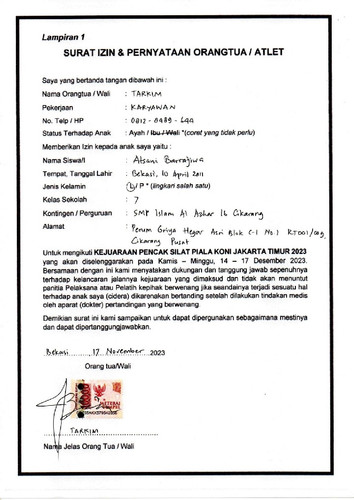 Lampiran 1
SURAT IZIN & PERNYATAAN ORANGTUA / ATLET
Saya yang bertanda tangan dibawah ini :
Nama Orangtua / Wali : TARKIM
Pekerjaan : KARYAWAN
No. Telp / HP : 0812-8489-
Status Terhadap Anak : Ayah / Ibu / Wali *(coret yang tidak perlu)
Memberikan Izin kepada anak saya yaitu :
Nama Siswa/I :
Tempat, Tanggal Lahir : Bekasi, 10 April 2011
Jenis Kelamin : L/P *(lingkari salah satu)
Kelas Sekolah : 7
Kontingen / Perguruan : SMP Islam Al Azhar 16 Cikarang
Alamat : Perum Griya Hegar Asri Blok C-1 No.1 RT001/
Cikarang Pusat
Untuk mengikuti KEJUARAAN PENCAK SILAT PIALA KONI JAKARTA TIMUR 2023
yang akan diselenggarakan pada Kamis – Minggu, 14 – 17 Desember 2023.
Bersamaan dengan ini kami menyatakan dukungan dan tanggung jawab sepenuhnya
terhadap kelancaran jalannya kejuaraan yang dimaksud dan tidak akan menuntut
panitia Pelaksana atau Pelatih kepihak berwenang jika seandainya terjadi sesuatu hal
terhadap anak saya (cidera) dikarenakan bertanding setelah dilakukan tindakan medis
oleh aparat (dokter) pertandingan yang berwenang.
Demikian surat ini kami sampaikan untuk dapat dipergunakan sebagaimana mestinya
dan dapat dipertanggungjawabkan.
Bekasi, 17 November 2023
Orang tua/Wali
METERAI
TEMPEL
TARKIM
Nama Jelas Orang Tua / Wali